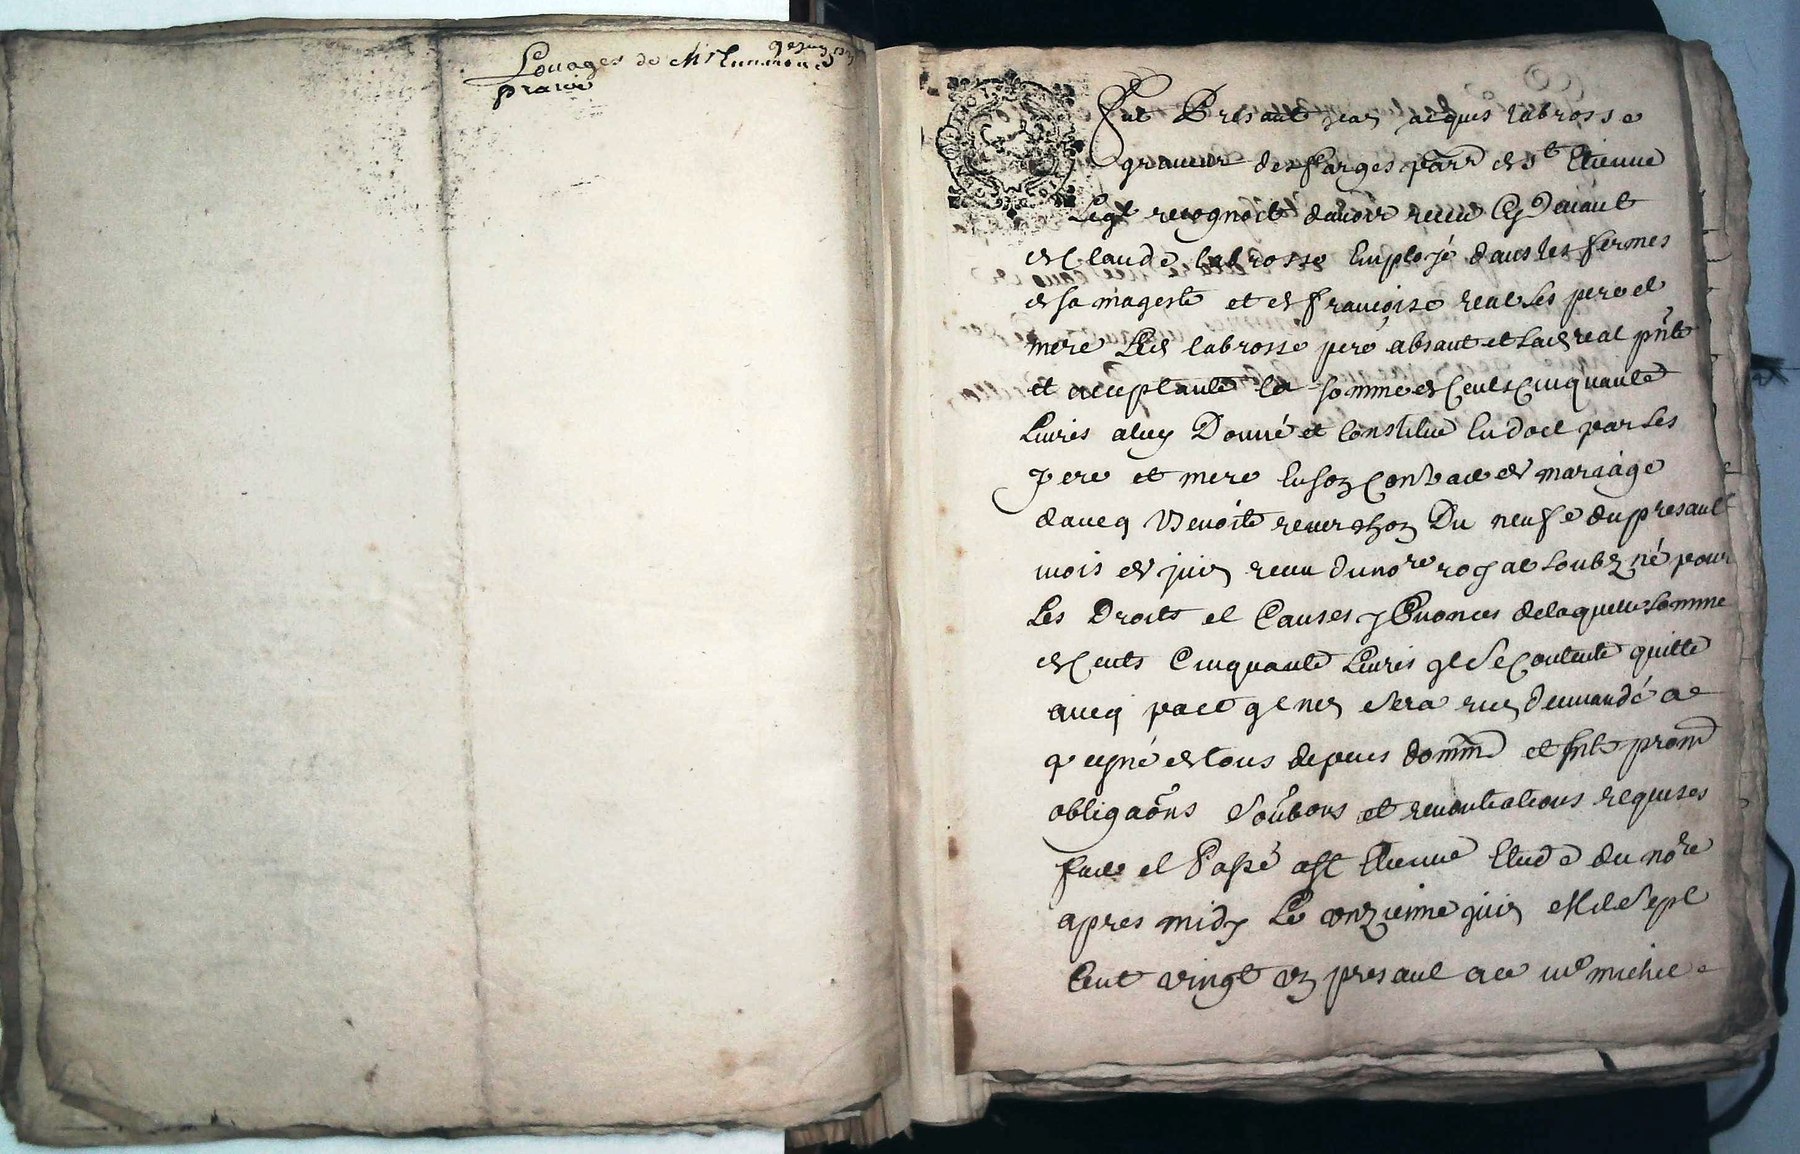 Louages de Mr
prairie
fut Presant Jean Jacques labrosse
graveur des forges parr de st Etienne
Leql recognoit davoir receu Cy Devant
de Claude labrosse Employé dans les fermes
de sa mageste et de françoise real ses pere et
mere Led labrosse pere absant et lad real pnte
et acceptante la somme de Cents Cinquante
Livres a luy Donné et Constitué En dot par ses
pere et mere En son Contract de mariage
davecq Benoite reverchon Du neufe du presant
mois de juin receu du nore royal soubzné pour
Les Droits et Causes y Enoncés de laquelle somme
de Cents Cinquante Livres il se Contente quitte
avecq pacte de nen sera rien demandé a
peyne de tous depens domm et Intz prom
obligaons soubons et renontiations requises
fait et Passé a st Etienne Etude du nore
apres midy Le onzieme juin Mil Sept
Cent vingt un presant a ce me michel